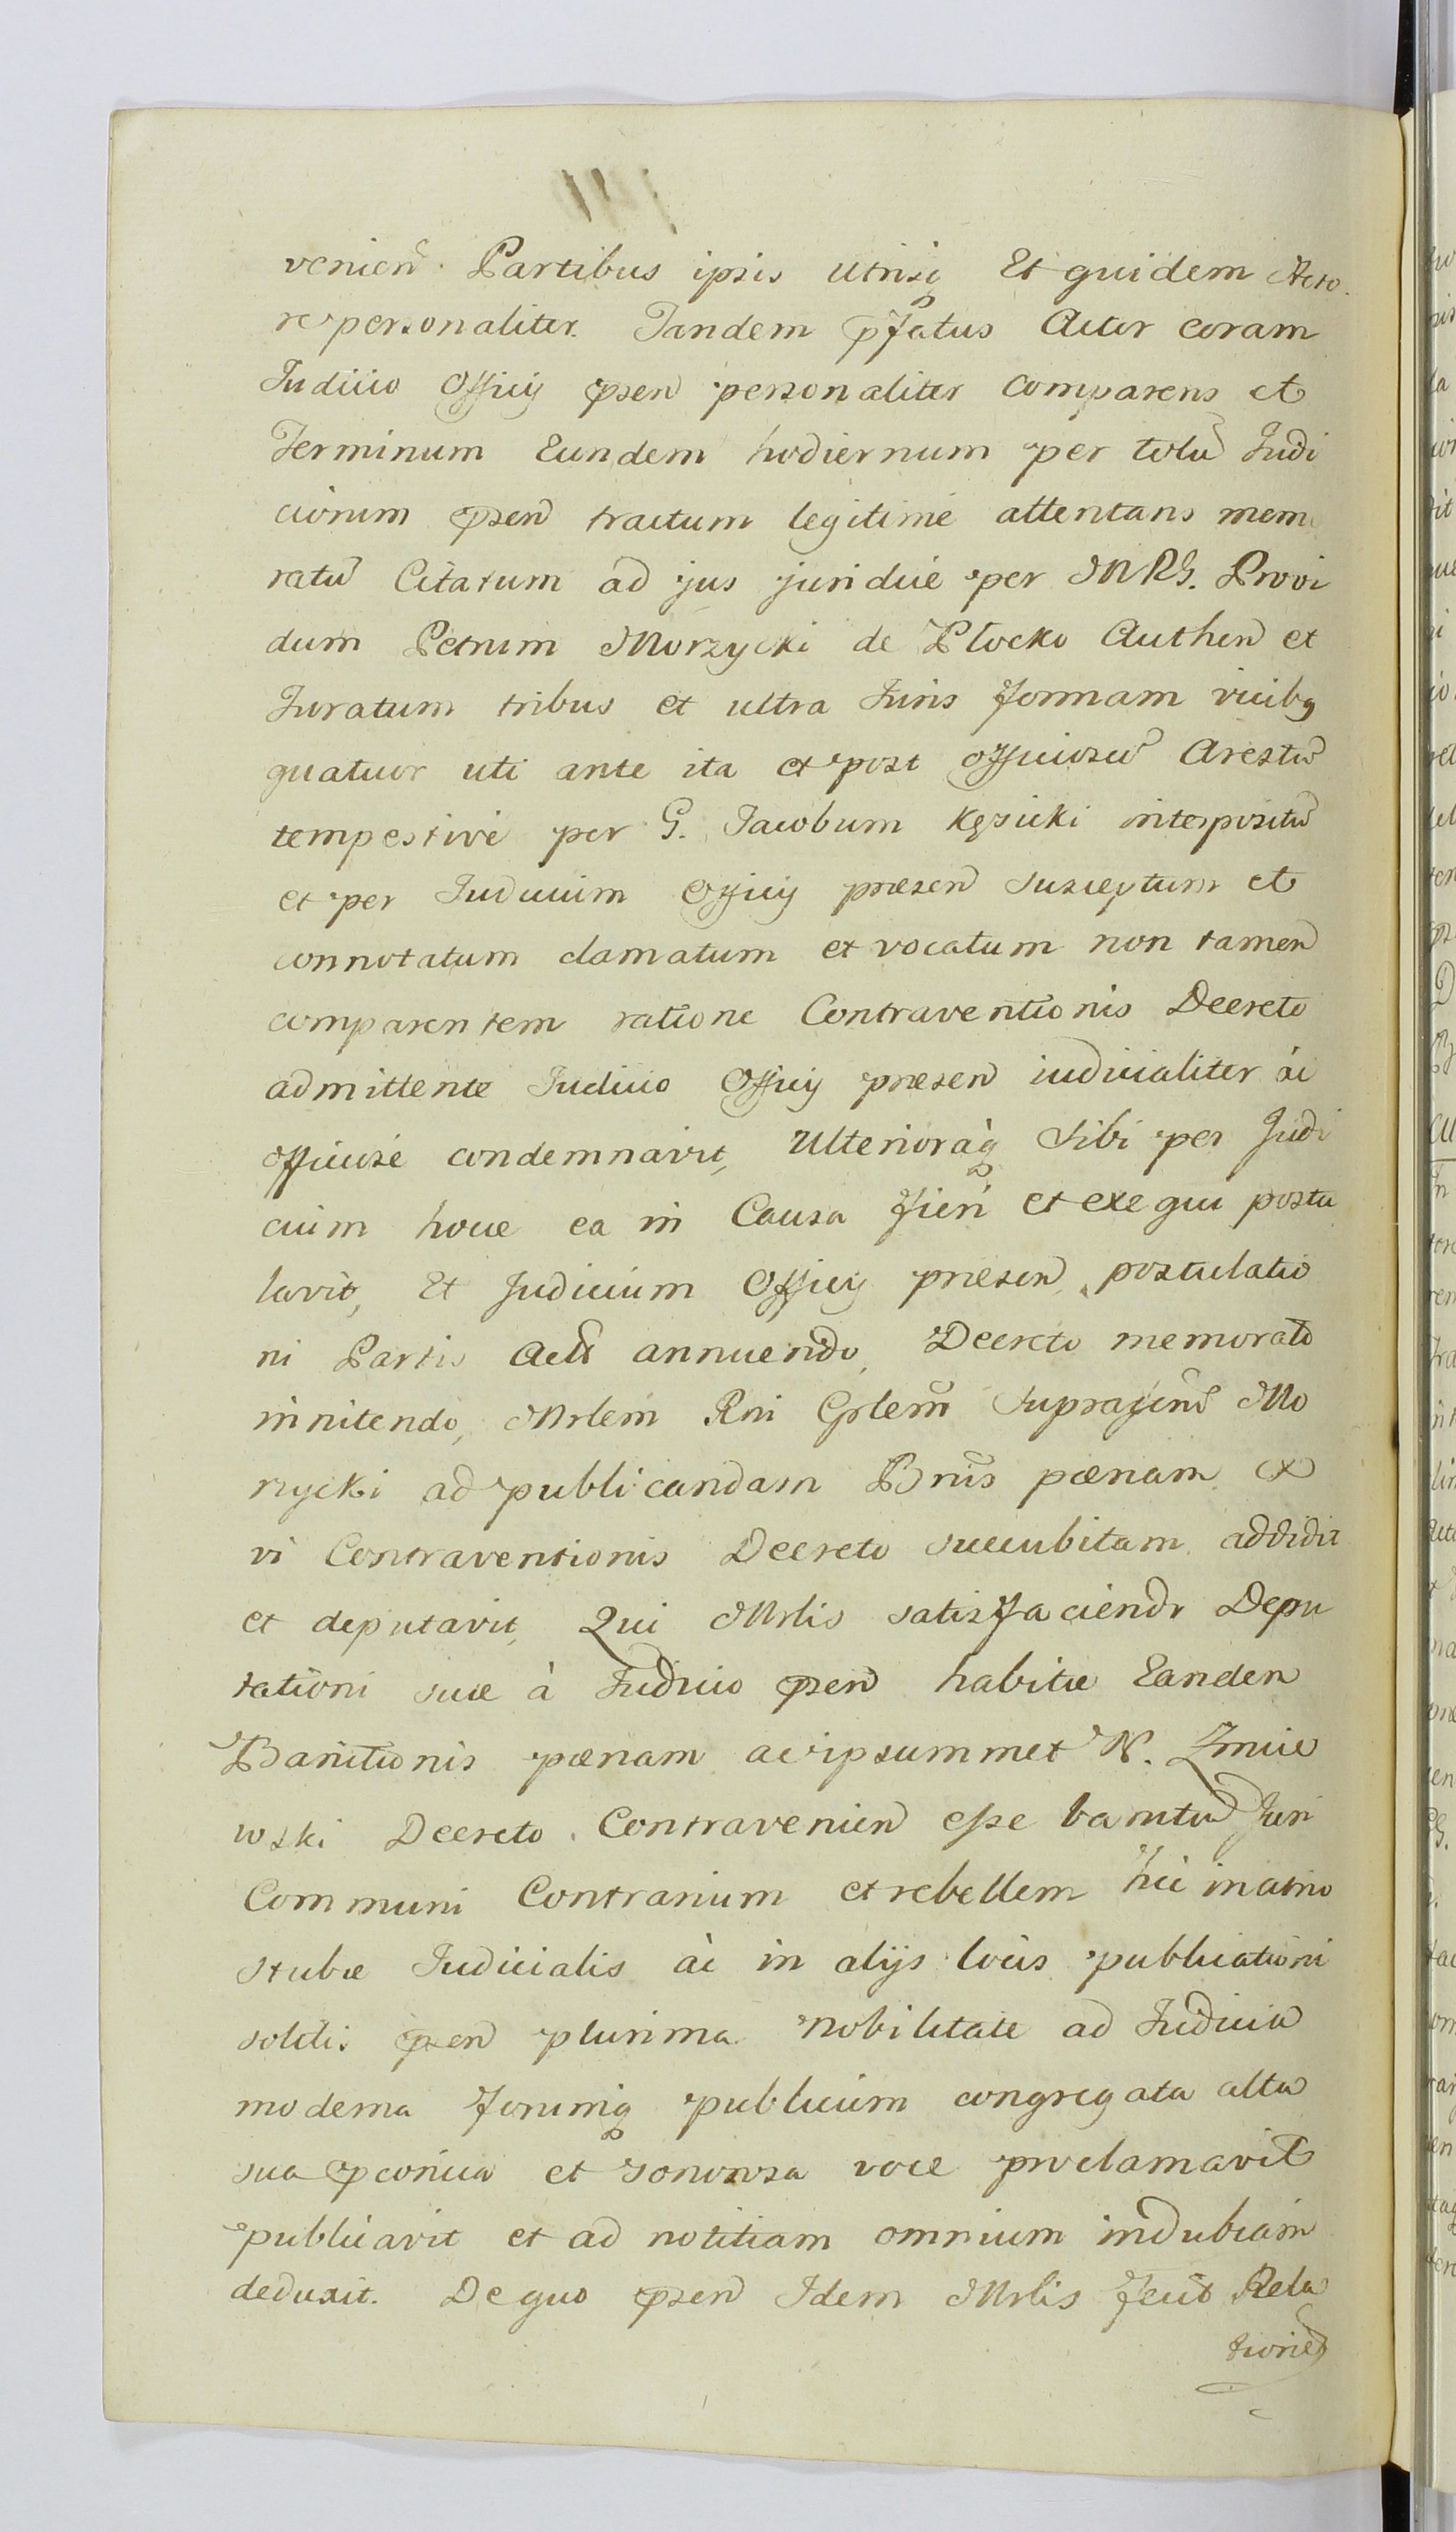 venien Partibus ipsis utrisq Et quidem Acto
re personaliter. Tandem pfatus Actor coram
Judicio Officij psen personaliter comparens et
Terminum Eundem hodiernum per totu Judi
ciorum psen tractum legitimé attentans memo
ratu Citatum ad jus juridicé per MRG. Provi
dum Petrum Morzycki de Płocko Authen et
Juratum tribus et ultra Juris formam vicibq
quatuor uti ante ita et post officiosu Arestu
tempestivé per G. Jacobum Kęsicki interpositu
et per Judicium Officij præsen susceptum et
connotatum clamatum et vocatum non tamen
comparentem ratione Contraventionis Decreto
admittente Judicio Officij præsen iudicialiter ác
officiosé condemnavit, Ulterioraq sibi per Judi
cium hocce ea in Causa fieri et exequi postu
lavit, Et Judicium Officij præsen postulatio
ni Partis Act annuendo, Decreto memorato
innitendo, Mrlem Rni Grlem suprafinu Mo
rzycki ad publicandam Bnis pœnam ex
vi Contraventionis Decreto succubitam addidit
et deputavit, Qui Mrlis satisfaciendo Depu
tationi suæ à Judicio psen habitæ Eandem
Banitionis pœnam ac ipsummet N. Zmije
wski Decreto Contravenien esse banitu Juri
Communi Contrarium et rebellem hic in atrio
stubæ Judicialis ác in alijs locis publicationi
solitis psen plurima Nobilitate ad Judicia
moderna Forumq publicum congregata alta
sua pconica et sonorosa voce proclamavit
publicavit et ad notitiam omnium indubiam
deduxit. De quo psen Idem Mrlis fecit Rela
tione